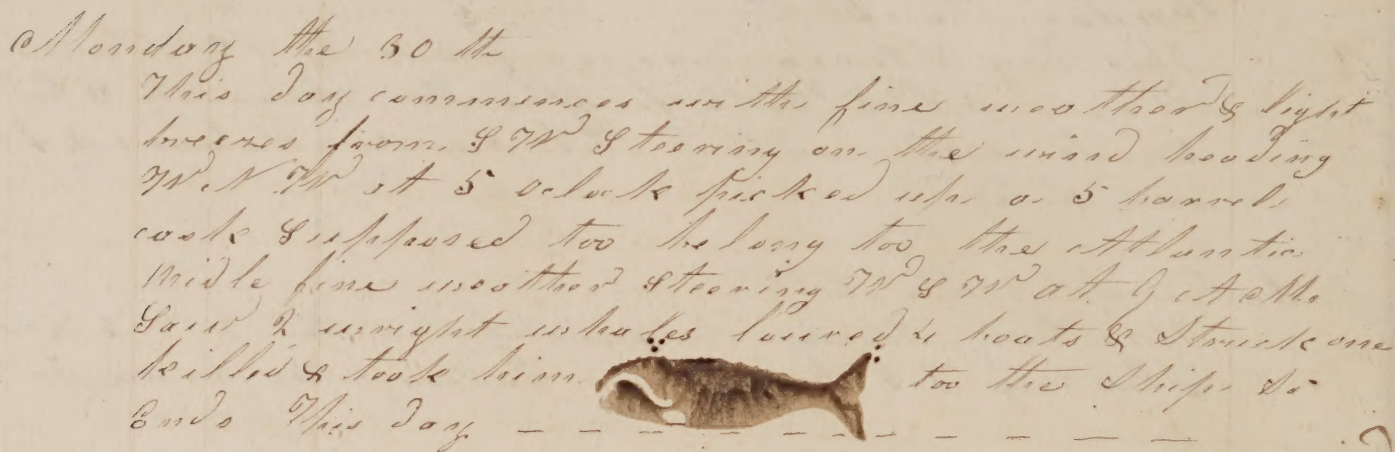 Monday the 30 th
This day commences with fine weather & light
breezes from S W Steering on the wind heading
W N W at 5 oclock picked up a 5 barrel
cask Supposed too belong too the Atlantic
Midle fine weather Steering W S W at 9 A M
Saw 2 wright whales loured 4 boats & Struck one
killed & took him too the Ship So
Ends This day